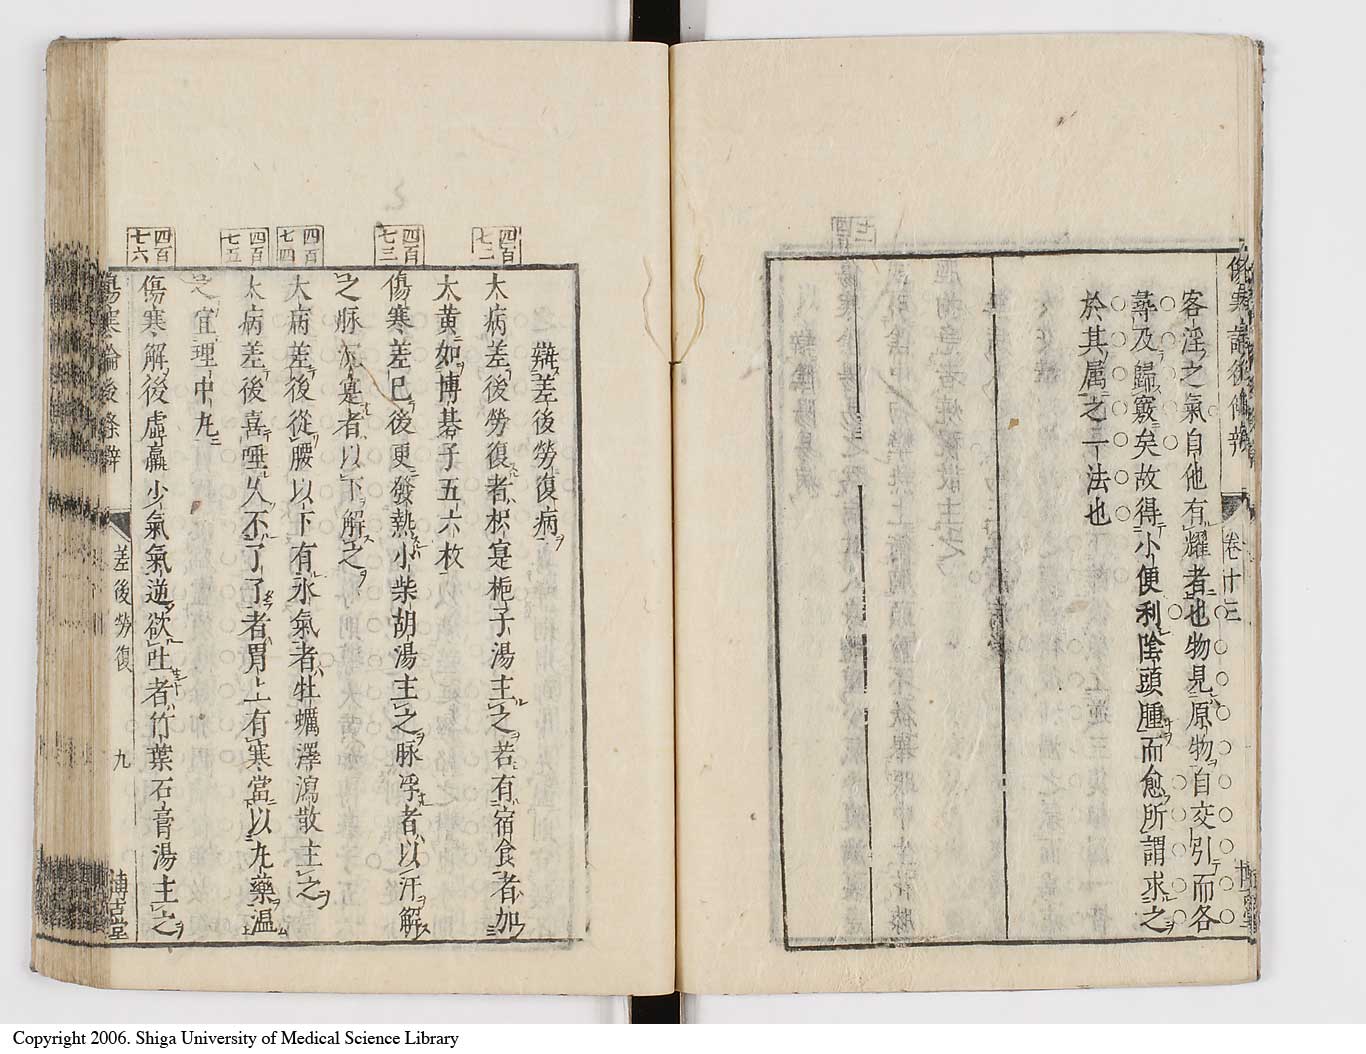 客淫之氣自他有耀者也物見原物自交引而各
尋及歸竅矣故得小便利陰頭腫而愈所謂求之
於其属之一法也
卷十三
辨差後勞復病
四百七二
大病差後勞復者枳寔梔子湯主之若有宿食者加
大黄如博碁子五六枚
四百七三
傷寒差已後更發熱小柴胡湯主之脉浮者以汗解
之脉沉寔者以下解之
四百七四
大病差後從腰以下有水氣者牡蠣澤瀉散主之
四百七五
大病差後喜唾久不了了者胃上有寒當以丸藥温
之宜理中丸
四百七六
傷寒解後虛羸少氣氣逆欲吐者竹葉石膏湯主之
傷寒論後條辨
差後勞復
九
博古堂
Copyright 2006. Shiga University of Medical Science Library